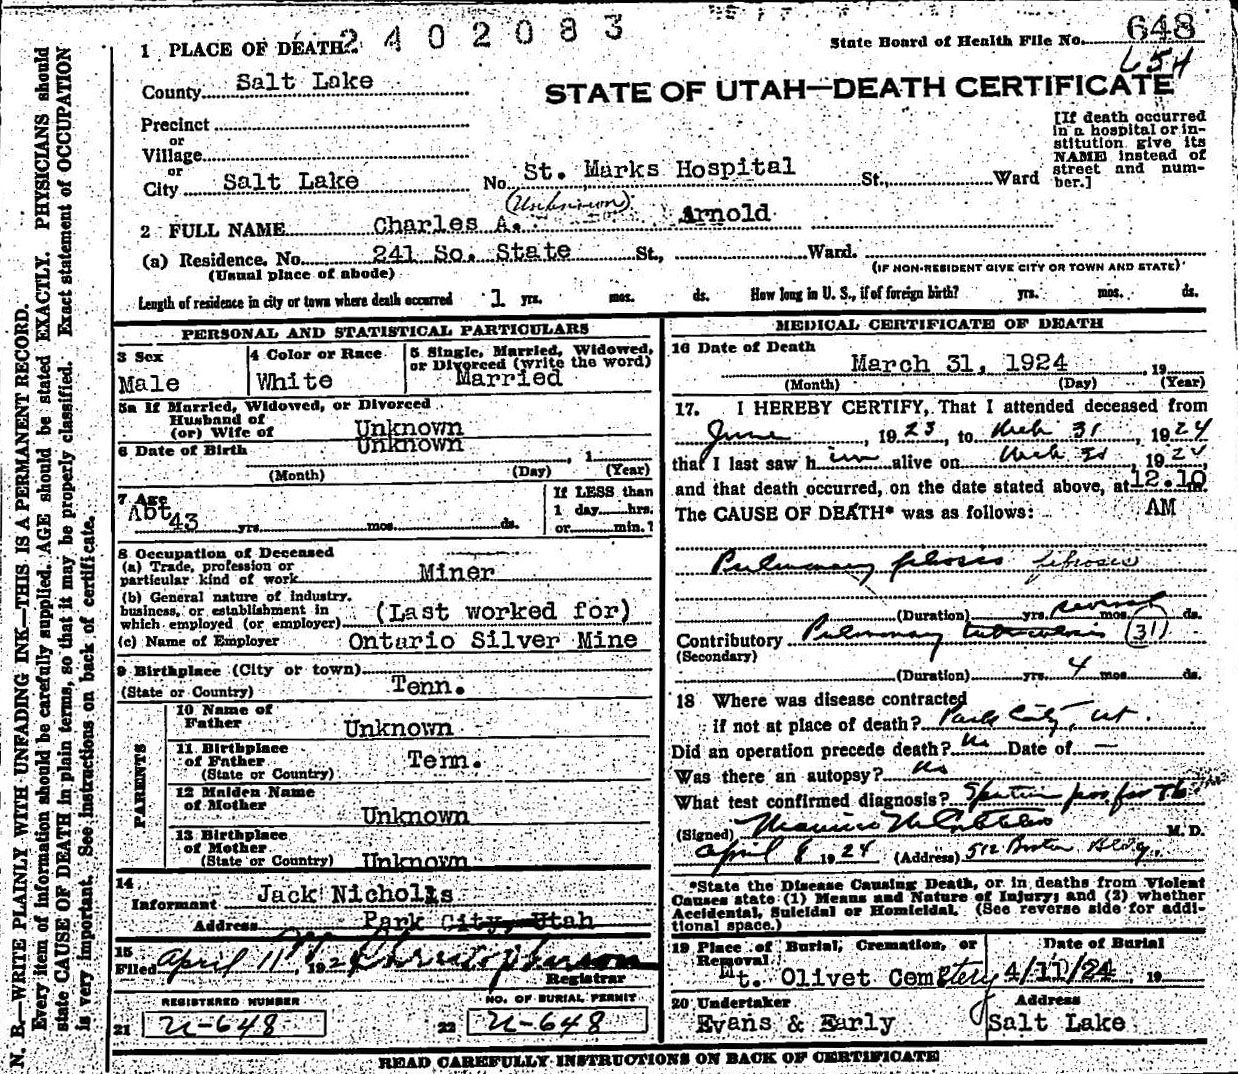 2402083
State Board of Health File No. 648
L5H
STATE OF UTAH—DEATH CERTIFICATE
1 PLACE OF DEATH
County Salt Lake
Precinct
or
Village
or
City Salt Lake No. St. Marks Hospital St., Ward
[If death occurred in a hospital or in-
stitution give its
NAME instead of
street and num-
ber.]
(Unknown)
2 FULL NAME Charles A. Arnold
(a) Residence. No. 241 So. State St., Ward.
(Usual place of abode) (IF NON-RESIDENT GIVE CITY OR TOWN AND STATE)
Length of residence in city or town where death occurred 1 yrs. mos. ds. How long in U. S., if of foreign birth? yrs. mos. ds.
PERSONAL AND STATISTICAL PARTICULARS
3 Sex
Male
4 Color or Race
White
5 Single, Married, Widowed,
or Divorced (write the word)
Married
5a If Married, Widowed, or Divorced
Husband of
(or) Wife of Unknown
6 Date of Birth Unknown , 1
(Month) (Day) (Year)
7 Age
Abt 43 yrs. mos. ds.
If LESS than
1 day hrs.
or min.?
8 Occupation of Deceased
(a) Trade, profession or
particular kind of work Miner
(b) General nature of industry,
business, or establishment in
which employed (or employer) (Last worked for)
(c) Name of Employer Ontario Silver Mine
9 Birthplace (City or town)
(State or Country) Tenn.
PARENTS
10 Name of
Father Unknown
11 Birthplace
of Father Tenn.
(State or Country)
12 Maiden Name
of Mother Unknown
13 Birthplace
of Mother
(State or Country) Unknown
14
Informant Jack Nicholls
Address Park City, Utah
15
Filed April 11, 1924 Christopherson
Registrar
REGISTERED NUMBER
21 U-648
NO. OF BURIAL PERMIT
22 U-648
MEDICAL CERTIFICATE OF DEATH
16 Date of Death
March 31, 1924 , 19
(Month) (Day) (Year)
17. I HEREBY CERTIFY, That I attended deceased from
June , 1923, to Mch 31 , 1924
that I last saw him alive on Mch 31, 1924,
and that death occurred, on the date stated above, at 12.10 m.
The CAUSE OF DEATH* was as follows: AM
Pulmonary fibrosis fibrosis
(Duration) yrs. several ds.
Contributory Pulmonary tuberculosis (31)
(Secondary)
(Duration) yrs. 4 mos. ds.
18 Where was disease contracted
if not at place of death? Park City, Ut.
Did an operation precede death? No Date of —
Was there an autopsy? No
What test confirmed diagnosis? Sputum pos. for Tb
(Signed) M. D.
April 8 1924 (Address) 512 Boston Bldg.
*State the Disease Causing Death, or in deaths from Violent
Causes state (1) Means and Nature of Injury; and (2) whether
Accidental, Suicidal or Homicidal. (See reverse side for addi-
tional space.)
19 Place of Burial, Cremation, or
Removal
Mt. Olivet Cemetery
Date of Burial
4/11/24 , 19
20 Undertaker
Evans & Early
Address
Salt Lake
READ CAREFULLY INSTRUCTIONS ON BACK OF CERTIFICATE
N. B.—WRITE PLAINLY WITH UNFADING INK—THIS IS A PERMANENT RECORD.
Every item of information should be carefully supplied. AGE should be stated EXACTLY. PHYSICIANS should
state CAUSE OF DEATH in plain terms, so that it may be properly classified. Exact statement of OCCUPATION
is very important. See instructions on back of certificate.